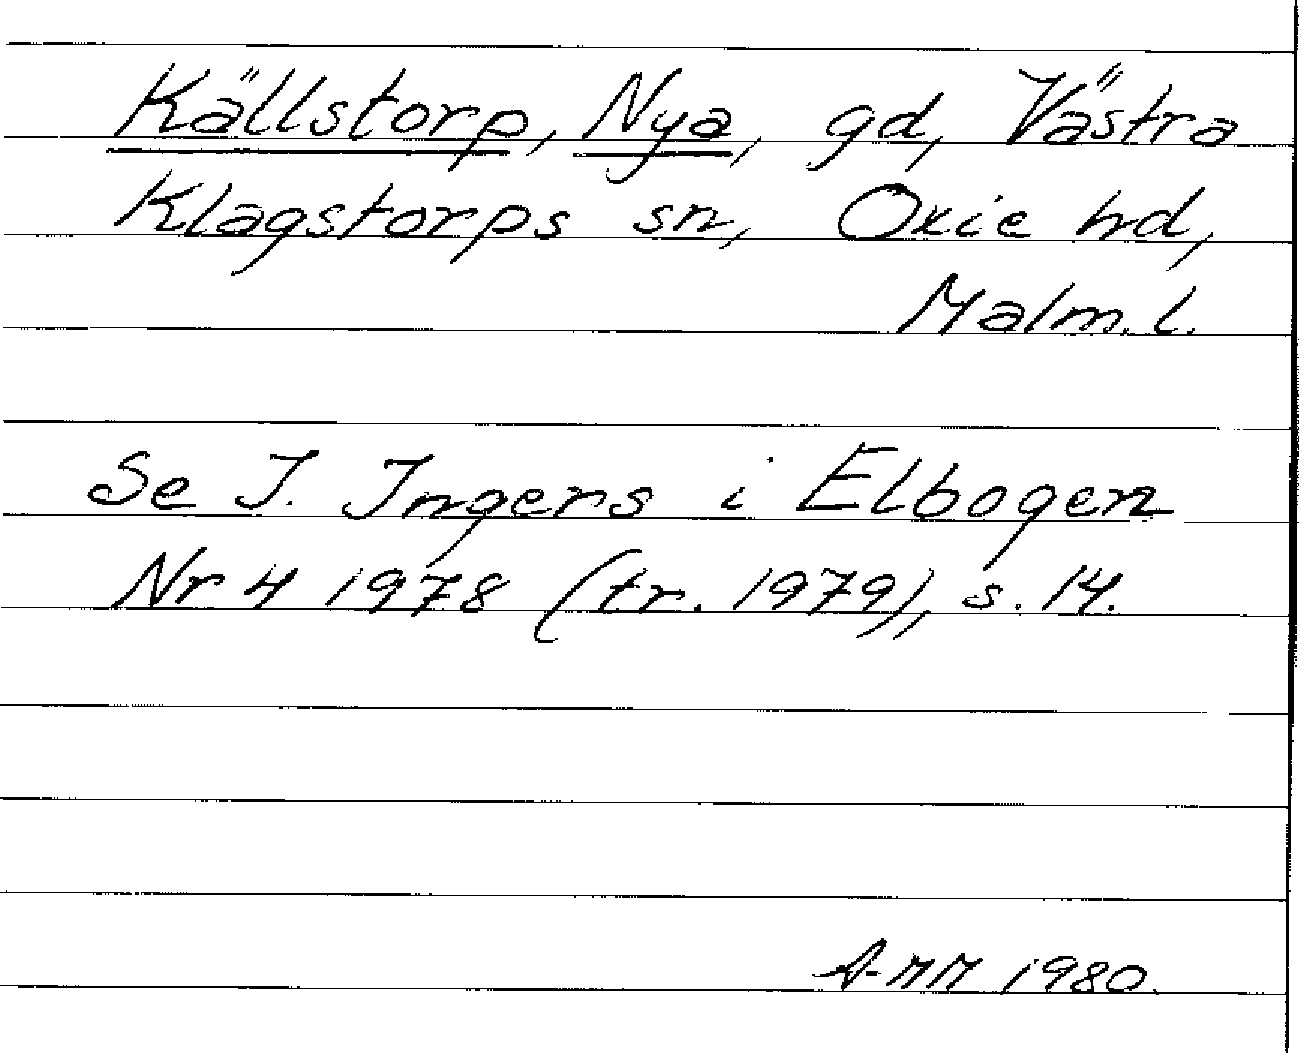 Källstorp, Nya, gd, Västra
Klagstorps sn, Oxie hd,
Malm. l.
Se I. Ingers i Elbogen
Nr 4 1978 (tr. 1979), s. 14.
A-MM 1980.